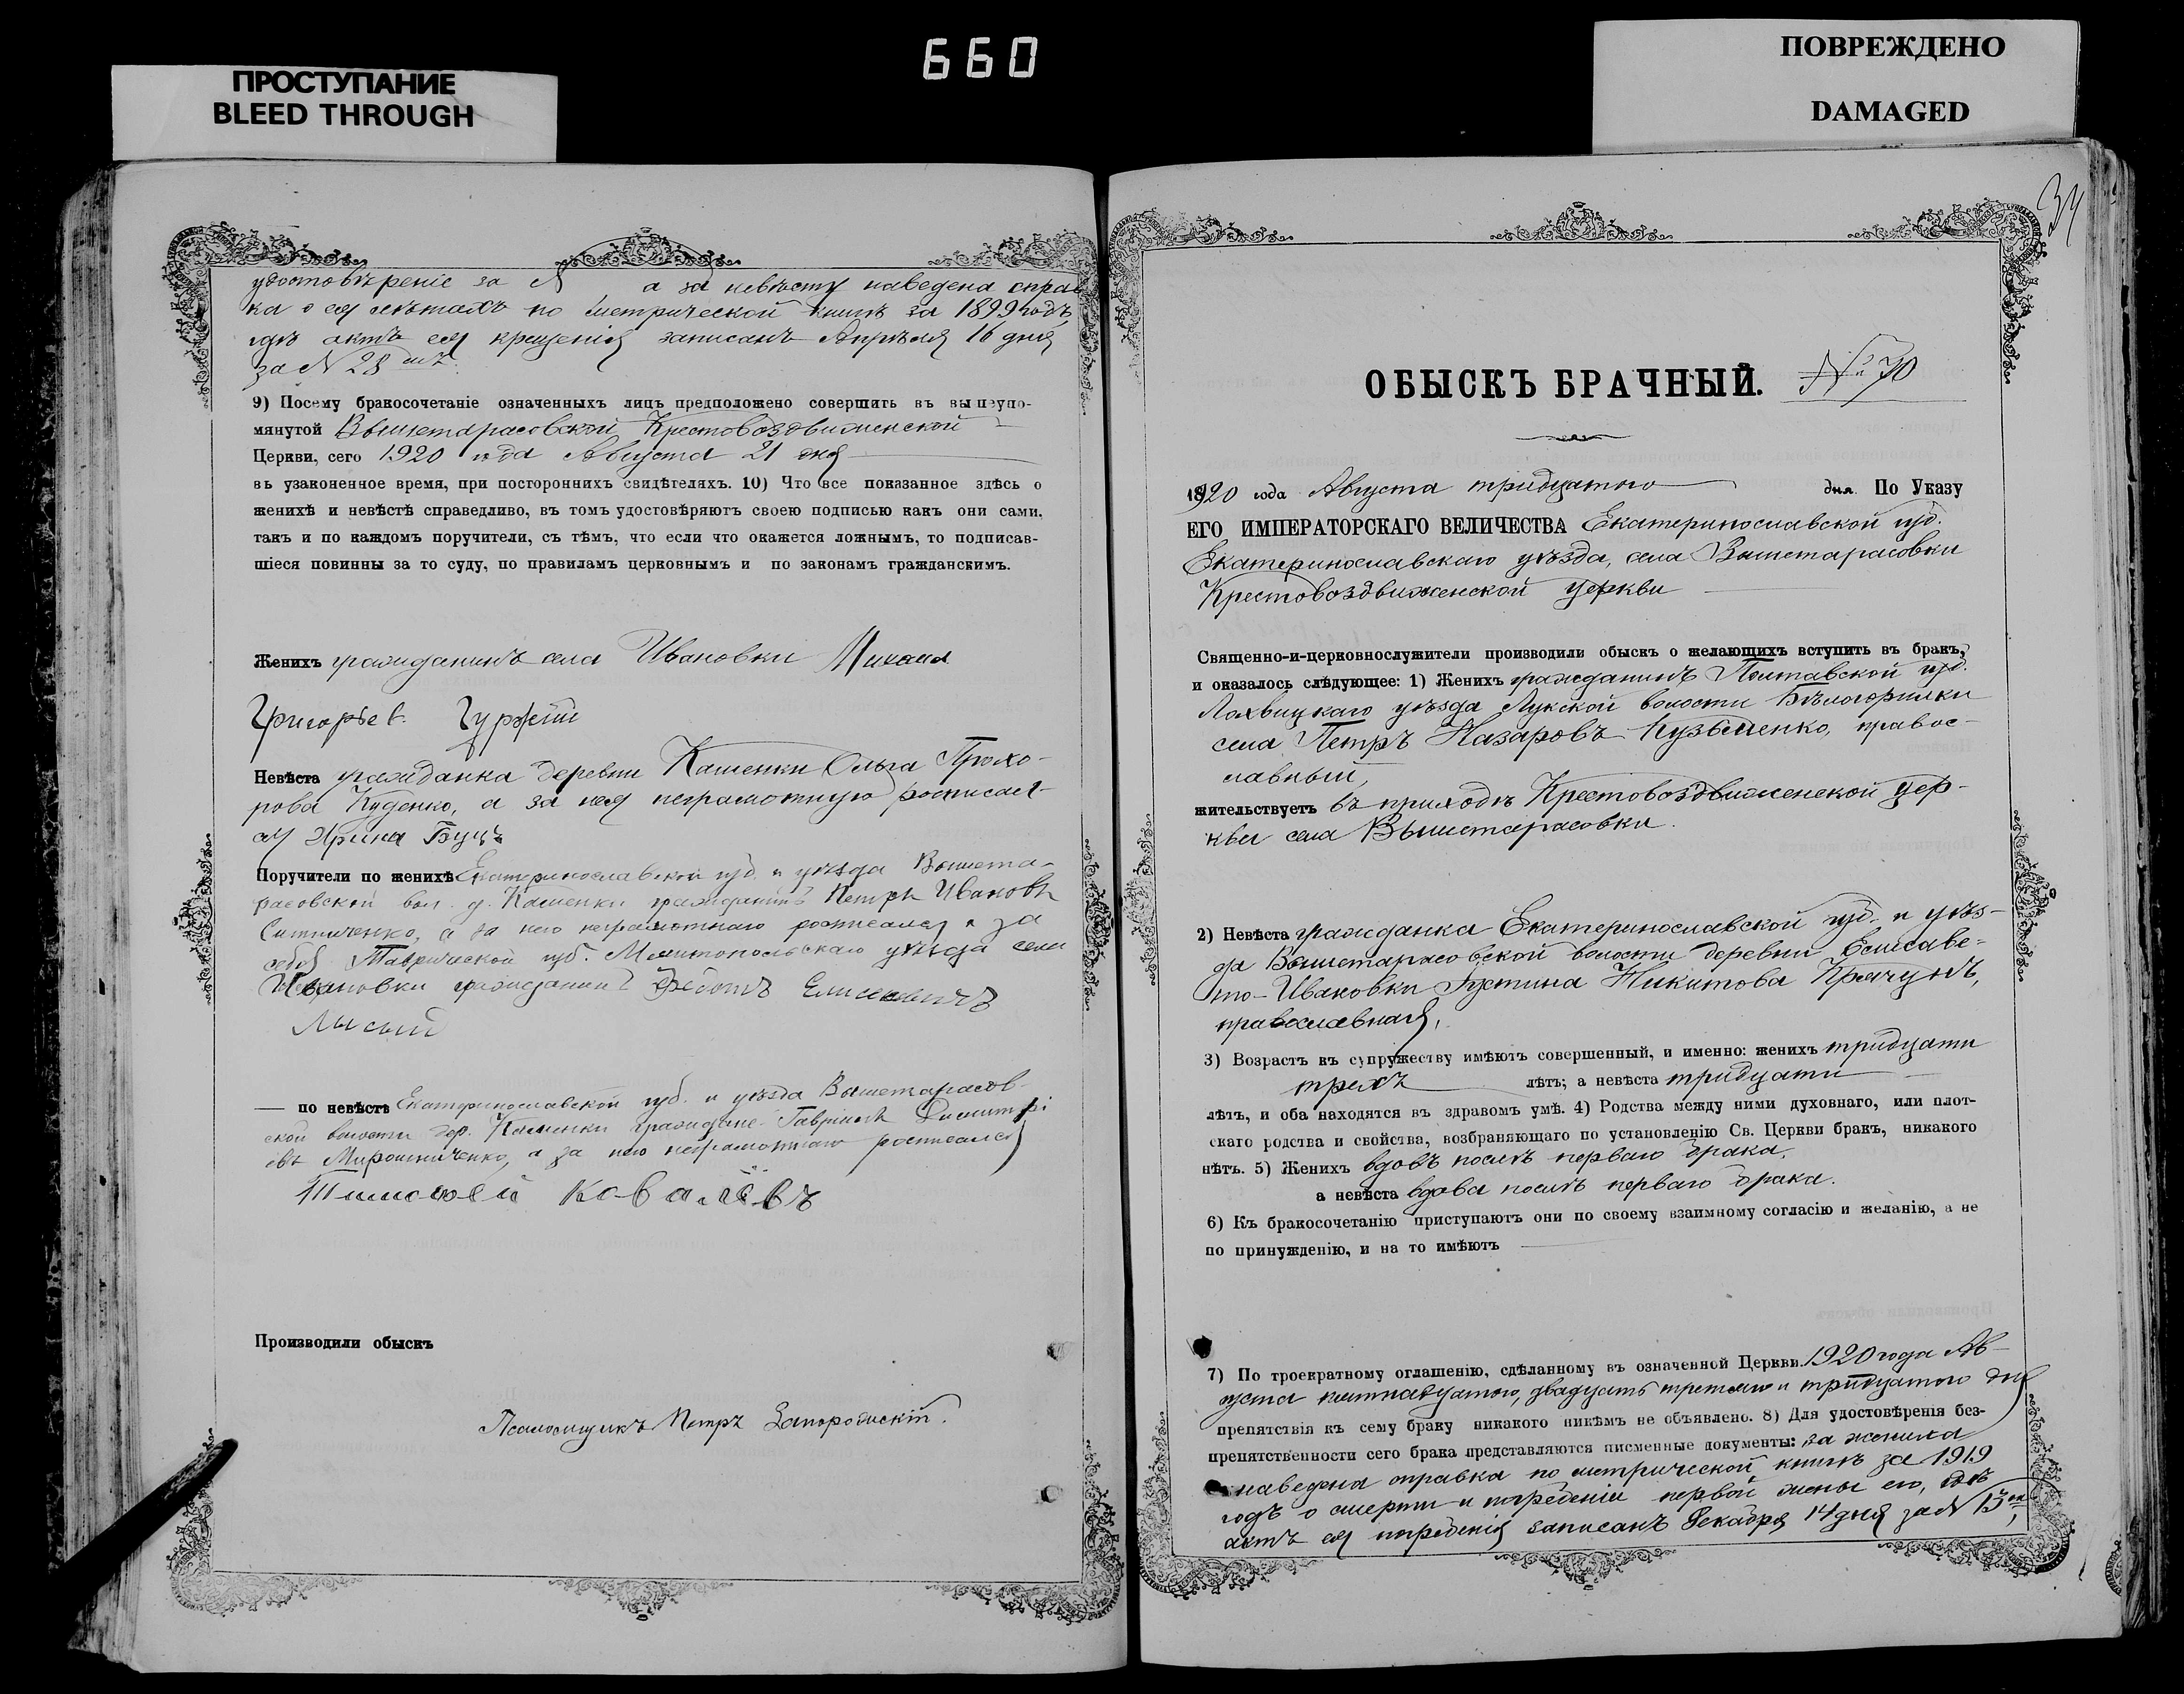 660
ПРОСТУПАНИЕ
BLEED THROUGH
ПОВРЕЖДЕНО
DAMAGED
удостовѣреніе за № а за невѣсту наведена справ
ка о ея лѣтахъ по метрической книгѣ за 1899 годъ,
гдѣ актъ ея крещенія записанъ Апрѣля 16 дня
за № 28
9) Посему бракосочетаніе означенныхъ лицъ предположено совершить въ вышеупо-
мянутой Вышетарасовской Крестовоздвиженской
Церкви, сего 1920 года Августа 21 дня
въ узаконенное время, при постороннихъ свидѣтеляхъ. 10) Что все показанное здѣсь о
женихѣ и невѣстѣ справедливо, въ томъ удостовѣряютъ своею подписью какъ они сами,
такъ и по каждомъ поручители, съ тѣмъ, что если что окажется ложнымъ, то подписав-
шіеся повинны за то суду, по правиламъ церковнымъ и по законамъ гражданскимъ.
Женихъ гражданинъ села Ивановки Михаил
Григорьев. Гуржій
Невѣста гражданка деревни Каменки Ольга Прохо-
рова Куценко, а за нея неграмотную росписал-
ся Ирина Буцъ
Поручители по женихѣ Екатеринославской губ. и уѣзда Вышета-
расовской вол. д. Каменки гражданинъ Петръ Ивановъ
Ситниченко, а за него неграмотнаго росписался и за
себя Таврической губ. Мелитопольскаго уѣзда села
Ивановки гражданинъ Федотъ Елисеевичъ
Лысый
— по невѣстѣ Екатеринославской губ. и уѣзда Вышетарасов-
ской волости дер. Каменки граждане Гавріилъ Димитрі
евъ Мирошниченко, а за него неграмотнаго росписался
Тимофей Ковалёвъ
Производили обыскъ
Псаломщикъ Петръ Запорожскій.
34
ОБЫСКЪ БРАЧНЫЙ. № 30
1920 года Августа тридцатого дня. По Указу
ЕГО ИМПЕРАТОРСКАГО ВЕЛИЧЕСТВА Екатеринославской губ.
Екатеринославскаго уѣзда, села Вышетарасовки
Крестовоздвиженской церкви
Священно-и-церковнослужители производили обыскъ о желающихъ вступить въ бракъ,
и оказалось слѣдующее: 1) Женихъ гражданинъ Полтавской губ.
Лохвицкаго уѣзда Лукской волости Бѣлогорилки
села Петръ Назаровъ Кузьменко, правос-
лавный,
жительствуетъ въ приходѣ Крестовоздвиженской цер-
кви села Вышетарасовки.
2) Невѣста гражданка Екатеринославской губ. и уѣз-
да Вышетарасовской волости деревни Елисаве-
то-Ивановки Устина Никитова Крячунъ,
православная,
3) Возрастъ къ супружеству имѣютъ совершенный, и именно: женихъ тридцати
трехъ лѣтъ; а невѣста тридцати
лѣтъ, и оба находятся въ здравомъ умѣ. 4) Родства между ними духовнаго, или плот-
скаго родства и свойства, возбраняющаго по установленію Св. Церкви бракъ, никакого
нѣтъ. 5) Женихъ вдовъ послѣ перваго брака,
а невѣста вдова послѣ перваго брака.
6) Къ бракосочетанію приступаютъ они по своему взаимному согласію и желанію, а не
по принужденію, и на то имѣютъ
7) По троекратному оглашенію, сдѣланному въ означенной Церкви 1920 года Ав-
густа пятнадцатого, двадцать третьяго и тридцатого дня
препятствія къ сему браку никакого никѣмъ не объявлено. 8) Для удостовѣренія без-
препятственности сего брака представляются писменные документы: за жениха
наведена справка по метрической книгѣ за 1919
годъ о смерти и погребеніи первой жены его, гдѣ
актъ ея погребенія записанъ Декабря 14 дня за №